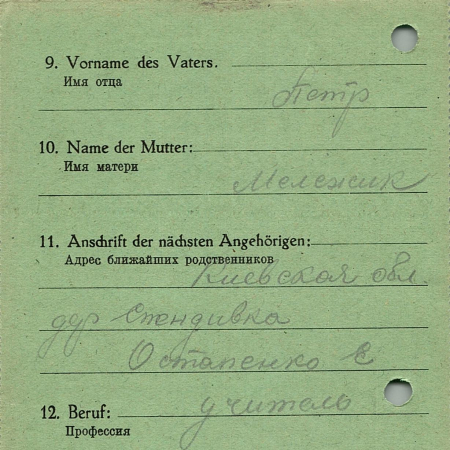 9. Vorname des Vaters.
Имя отца
Петр
10. Name der Mutter:
Имя матери
Мележик
11. Anschrift der nächsten Angehörigen:
Адрес ближайших родственников
Киевская обл.
дер
Остапенко Е
учитель
12. Beruf:
Профессия